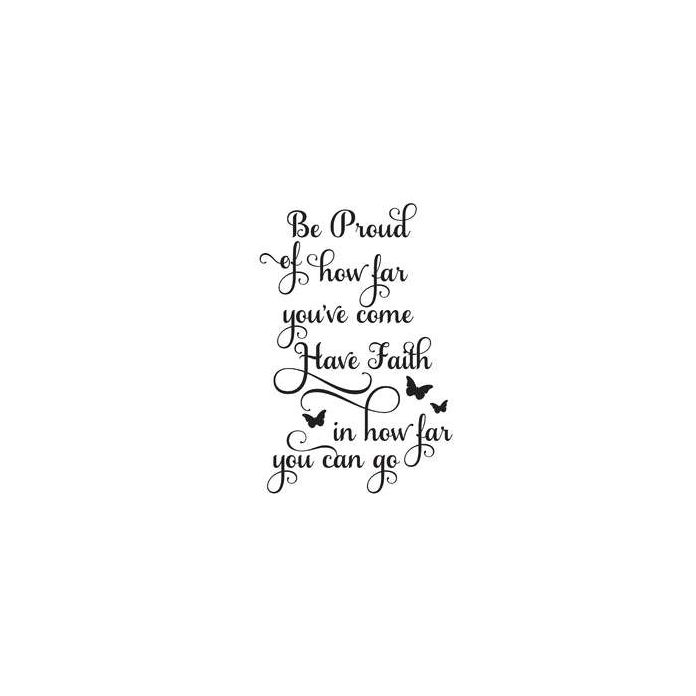 Be Proud
of how far
you've come
Have Faith
in how far
you can go